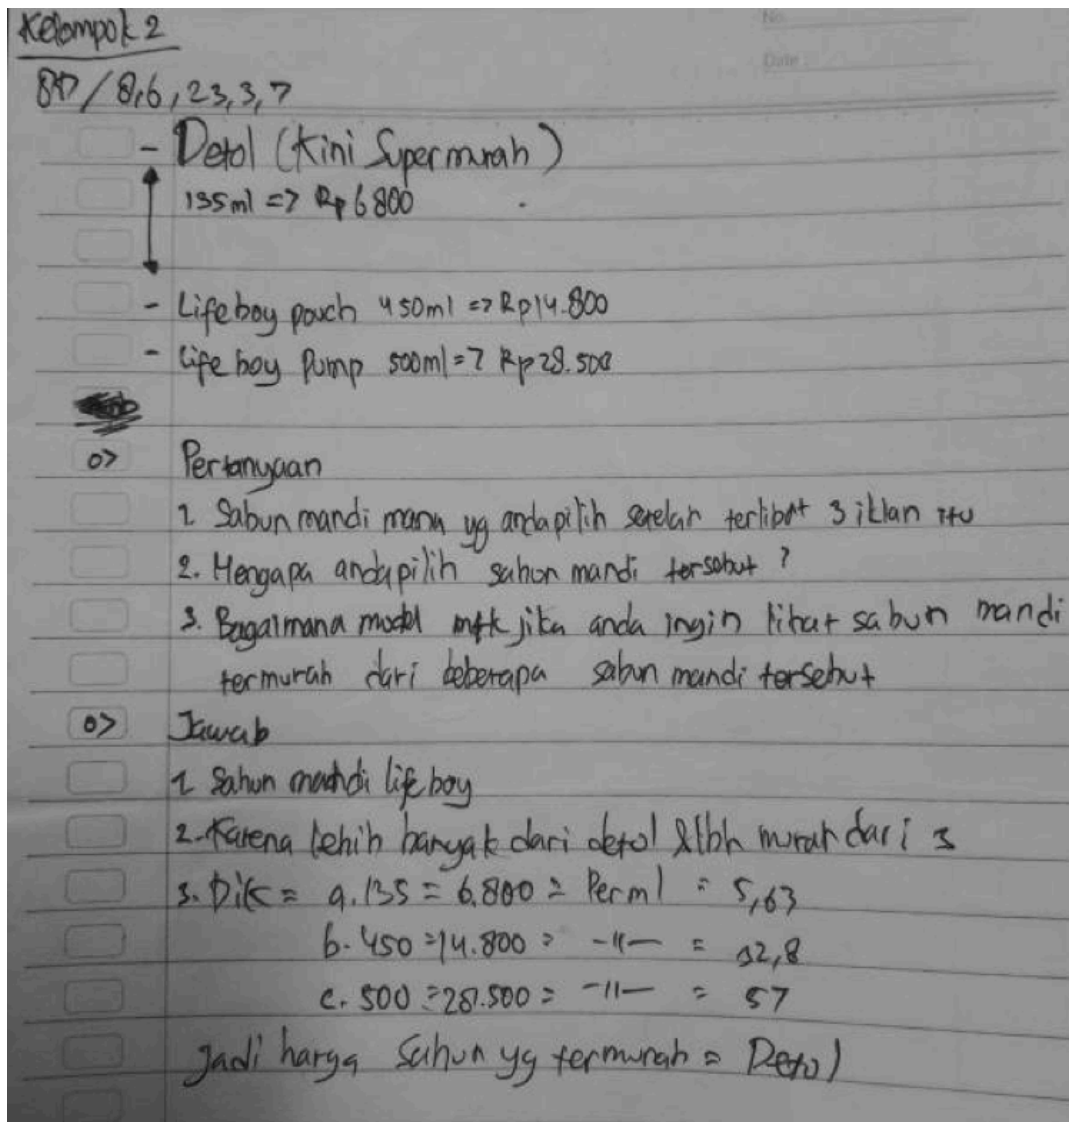 No.
Date
Kelompok 2
8D/8,6,23,3,7
- Detol (Kini Supermurah)
135ml => Rp 6800
- Lifeboy pouch 450ml => Rp14.800
- Life boy Pump 500ml => Rp28.500
Pertanyaan
1 Sabun mandi mana yg anda pilih setelah terlibat 3 iklan itu
2. Mengapa anda pilih sabun mandi tersebut ?
3. Bagaimana model mtk jika anda ingin lihat sabun mandi
termurah dari beberapa sabun mandi tersebut
Jawab
1 Sabun mandi life boy
2. Karena lebih banyak dari detol & lbh murah dari 3
3. Dik = a. 135 = 6.800 = Per ml = 5,63
b. 450 = 14.800 = -11- = 32,8
c. 500 = 28.500 = -11- = 57
Jadi harga sabun yg termurah = Detol